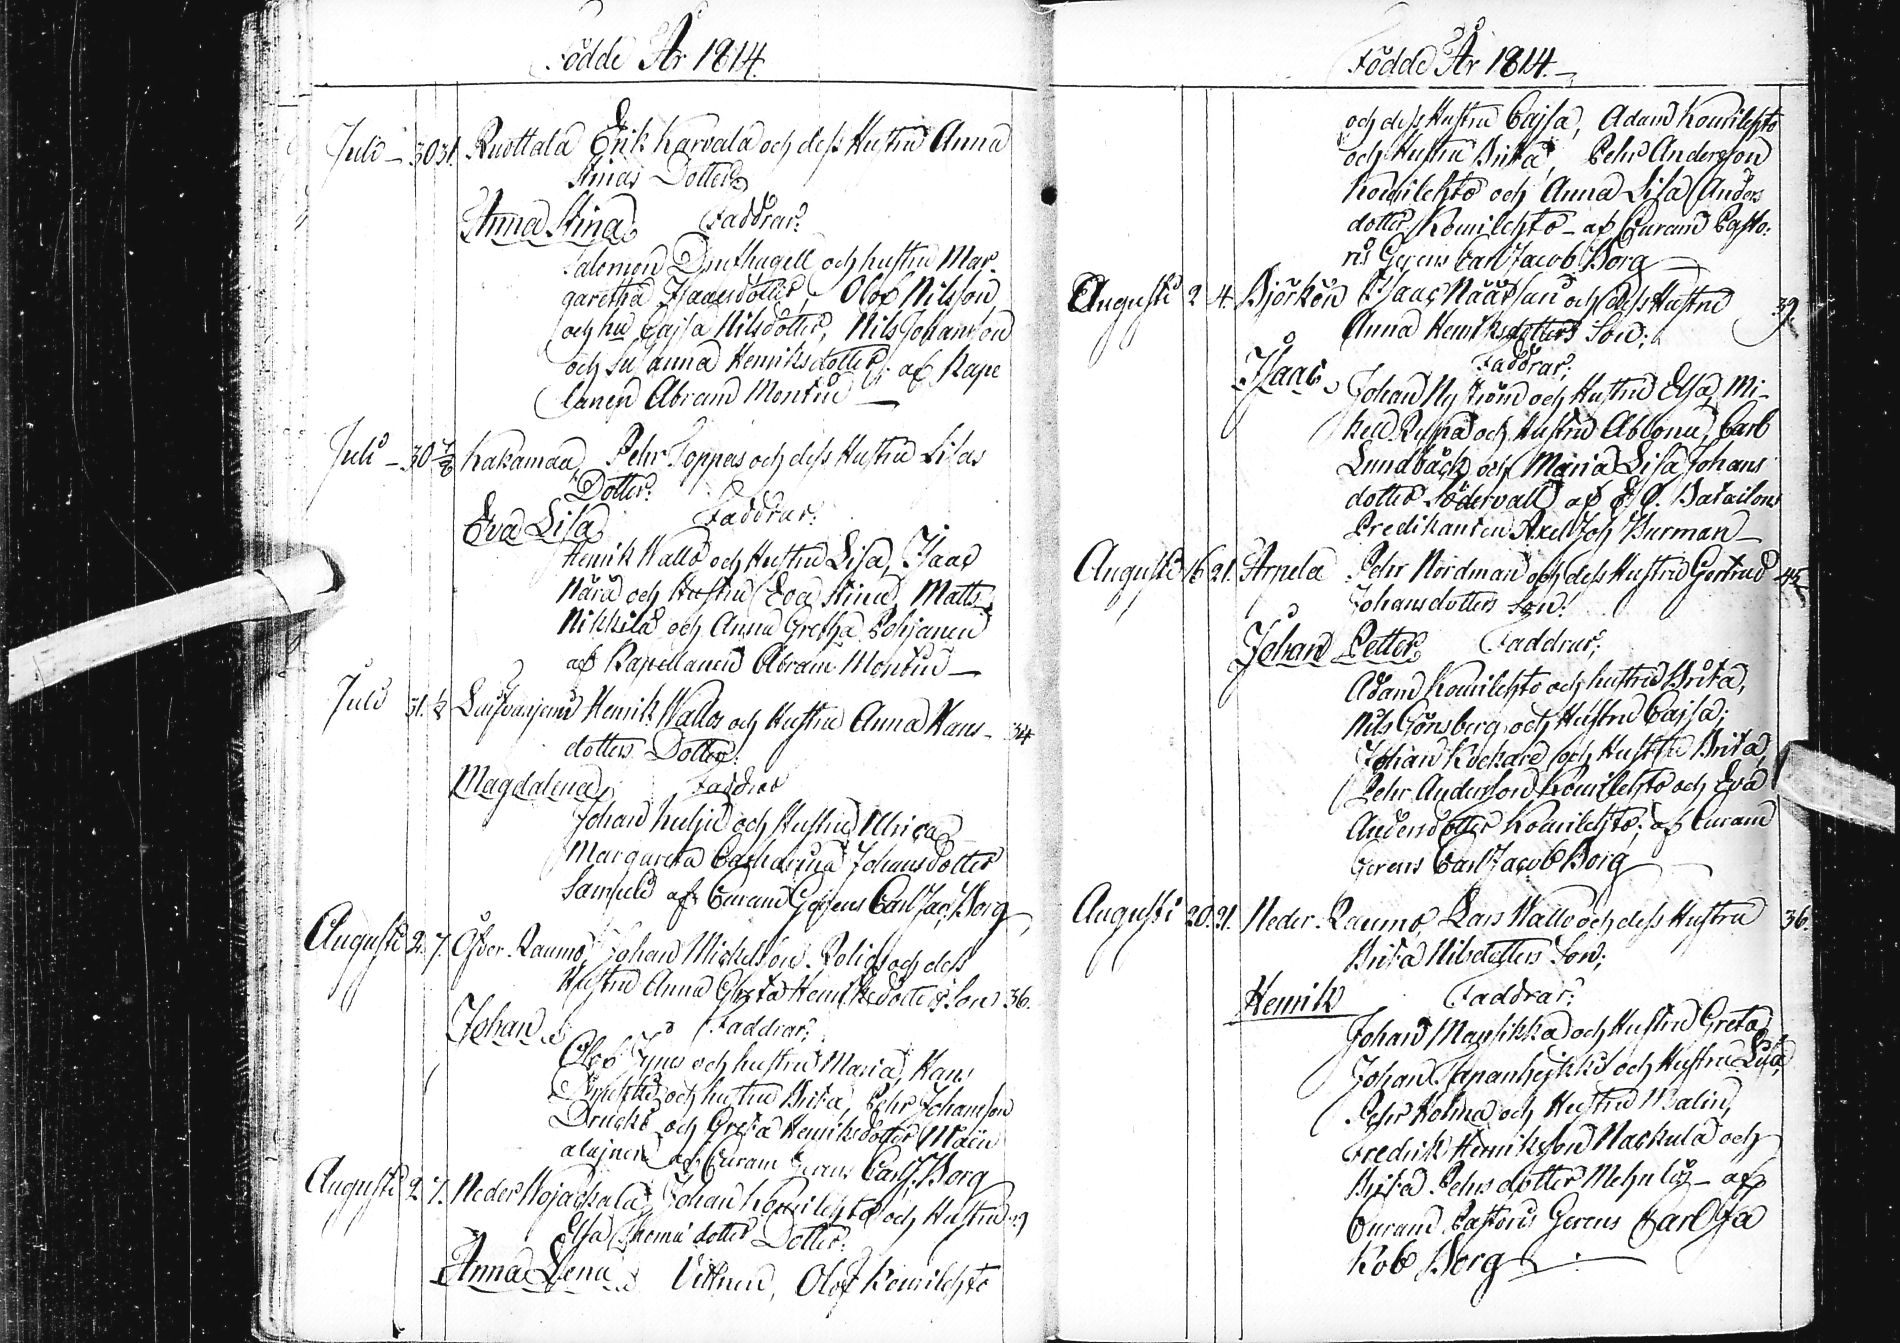 Födde År 1814.
Juli 30 31. Ruottala Erik Karvala och dess Hustru Anna
Stinas Dotter
Anna Stina Faddrar:
Salomon och hustru Mar-
garetha Isaacsdotter, Olof Nilsson
och hu Cajsa Nilsdotter, Nils Johansson
och Susanna Henriksdotter; af Kape
lanen Abram Montin
Juli 30 7/8 Kakamaa Pehr Toppas och dess Hustru Lisas
Dotter:
Eva Lisa Faddrar:
Henrik Wallo och Hustru Lisa, Isaac
Närä och Hustru Eva Stina, Matts
Nikkilä och Anna Gretha Pohjanen
af Kapellanen Abram Montin
Juli 31. Henrik Wallos och Hustru Anna Hans- 34
dotters Dotter:
Magdalena Faddrar
Johan och Hustru Ulrica
Margareta Catharina Johansdotter
af Curam Gerens Carl Jac: Borg
Augusti 2. 7. Öfver-Raumo, Johan Mickelson och dess
Hustru Anna Greta Henriksdotters Son 36.
Johan Faddrar:
Olof och hustru Maria, Hans
och hustru Brita, Pehr Johansson
Drucks och Greta Henriksdotter
af Curam Gerens Carl J. Borg
Augusti 2 7. Neder Wojackala Johan Kouvilehto och Hustru
Elsa dotter Dotter:
Anna Lena Vittnen, Olof Kouvilehto
Födde År 1814.
och dess Hustru Cajsa, Adam Kouvilehto
och Hustru Brita, Pehr Andersson
Kouvilehto och Anna Lisa Anders
dotter Kouvilehto af Curam Pasto-
ris Gerens Carl Jacob Borg
Augusti 2 4. Björkön Isaac och dess Hustru 39.
Anna Henriksdotters Son:
Isaac Faddrar:
Johan Nyström och Hustru Elsa, Mi-
kel och Hustru Ablona, Carl
Lundbäck och Maria Lisa Johans
dotter Södervall af Bataillons
Predikanten Axel Joh Burman
Augusti 16 21. Arpela Pehr Nordman och dess Hustru Gertrud 45
Johansdotters Son:
Johan Petter Faddrar:
Adam Kouvilehto och hustru Brita,
Nils Görsberg och Hustru Cajsa;
Johan Kockare och Hustru Brita,
Pehr Andersson Kouvilehto och Eva
Andersdotter Kouvilehto; af Curam
Gerens Carl Jacob Borg
Augusti 20. 21. Neder-Raumo, Lars Wallo och dess Hustru 36.
Brita Nilsdotters Son:
Henrik Faddrar:
Johan Mansikka och Hustru Greta,
Johan Tapanheikki och Hustru Lisa,
Pehr Holma och Hustru Malin,
Fredrik Henriksson Naskula och
Brita Pehrsdotter af
Curam Pastoris Gerens Carl Ja
kob Borg